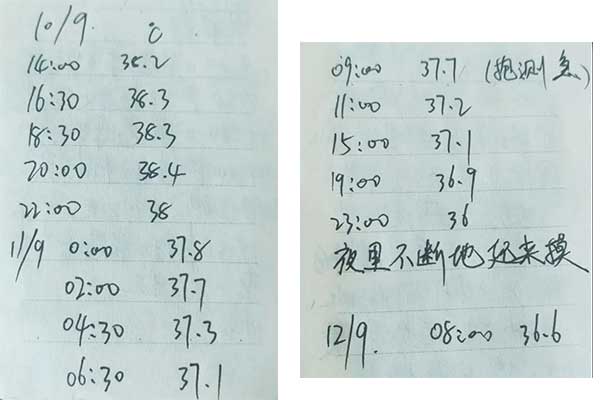 10/9. ℃
14:00 38.2
16:30 38.3
18:30 38.3
20:00 38.4
22:00 38
11/9 0:00 37.8
02:00 37.7
04:30 37.3
06:30 37.1
09:00 37.7 (抱测急)
11:00 37.2
15:00 37.1
19:00 36.9
23:00 36
夜里不断地起来摸
12/9. 08:00 36.6